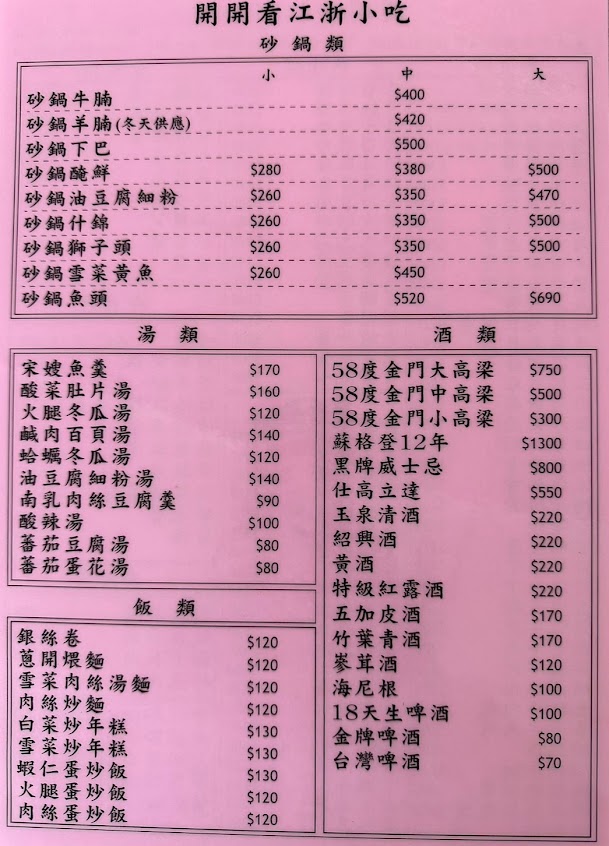 開開看江浙小吃
砂鍋類
小 中 大
砂鍋牛腩 $400
砂鍋羊腩(冬天供應) $420
砂鍋下巴 $500
砂鍋醃鮮 $280 $380 $500
砂鍋油豆腐細粉 $260 $350 $470
砂鍋什錦 $260 $350 $500
砂鍋獅子頭 $260 $350 $500
砂鍋雪菜黃魚 $260 $450
砂鍋魚頭 $520 $690
湯類
宋嫂魚羹 $170
酸菜肚片湯 $160
火腿冬瓜湯 $120
鹹肉百頁湯 $140
蛤蠣冬瓜湯 $120
油豆腐細粉湯 $140
南乳肉絲豆腐羹 $90
酸辣湯 $100
蕃茄豆腐湯 $80
蕃茄蛋花湯 $80
飯類
銀絲卷 $120
蔥開煨麵 $120
雪菜肉絲湯麵 $120
肉絲炒麵 $120
白菜炒年糕 $130
雪菜炒年糕 $130
蝦仁蛋炒飯 $130
火腿蛋炒飯 $120
肉絲蛋炒飯 $120
酒類
58度金門大高梁 $750
58度金門中高梁 $500
58度金門小高梁 $300
蘇格登12年 $1300
黑牌威士忌 $800
仕高立達 $550
玉泉清酒 $220
紹興酒 $220
黃酒 $220
特級紅露酒 $220
五加皮酒 $170
竹葉青酒 $170
蔘茸酒 $120
海尼根 $100
18天生啤酒 $100
金牌啤酒 $80
台灣啤酒 $70